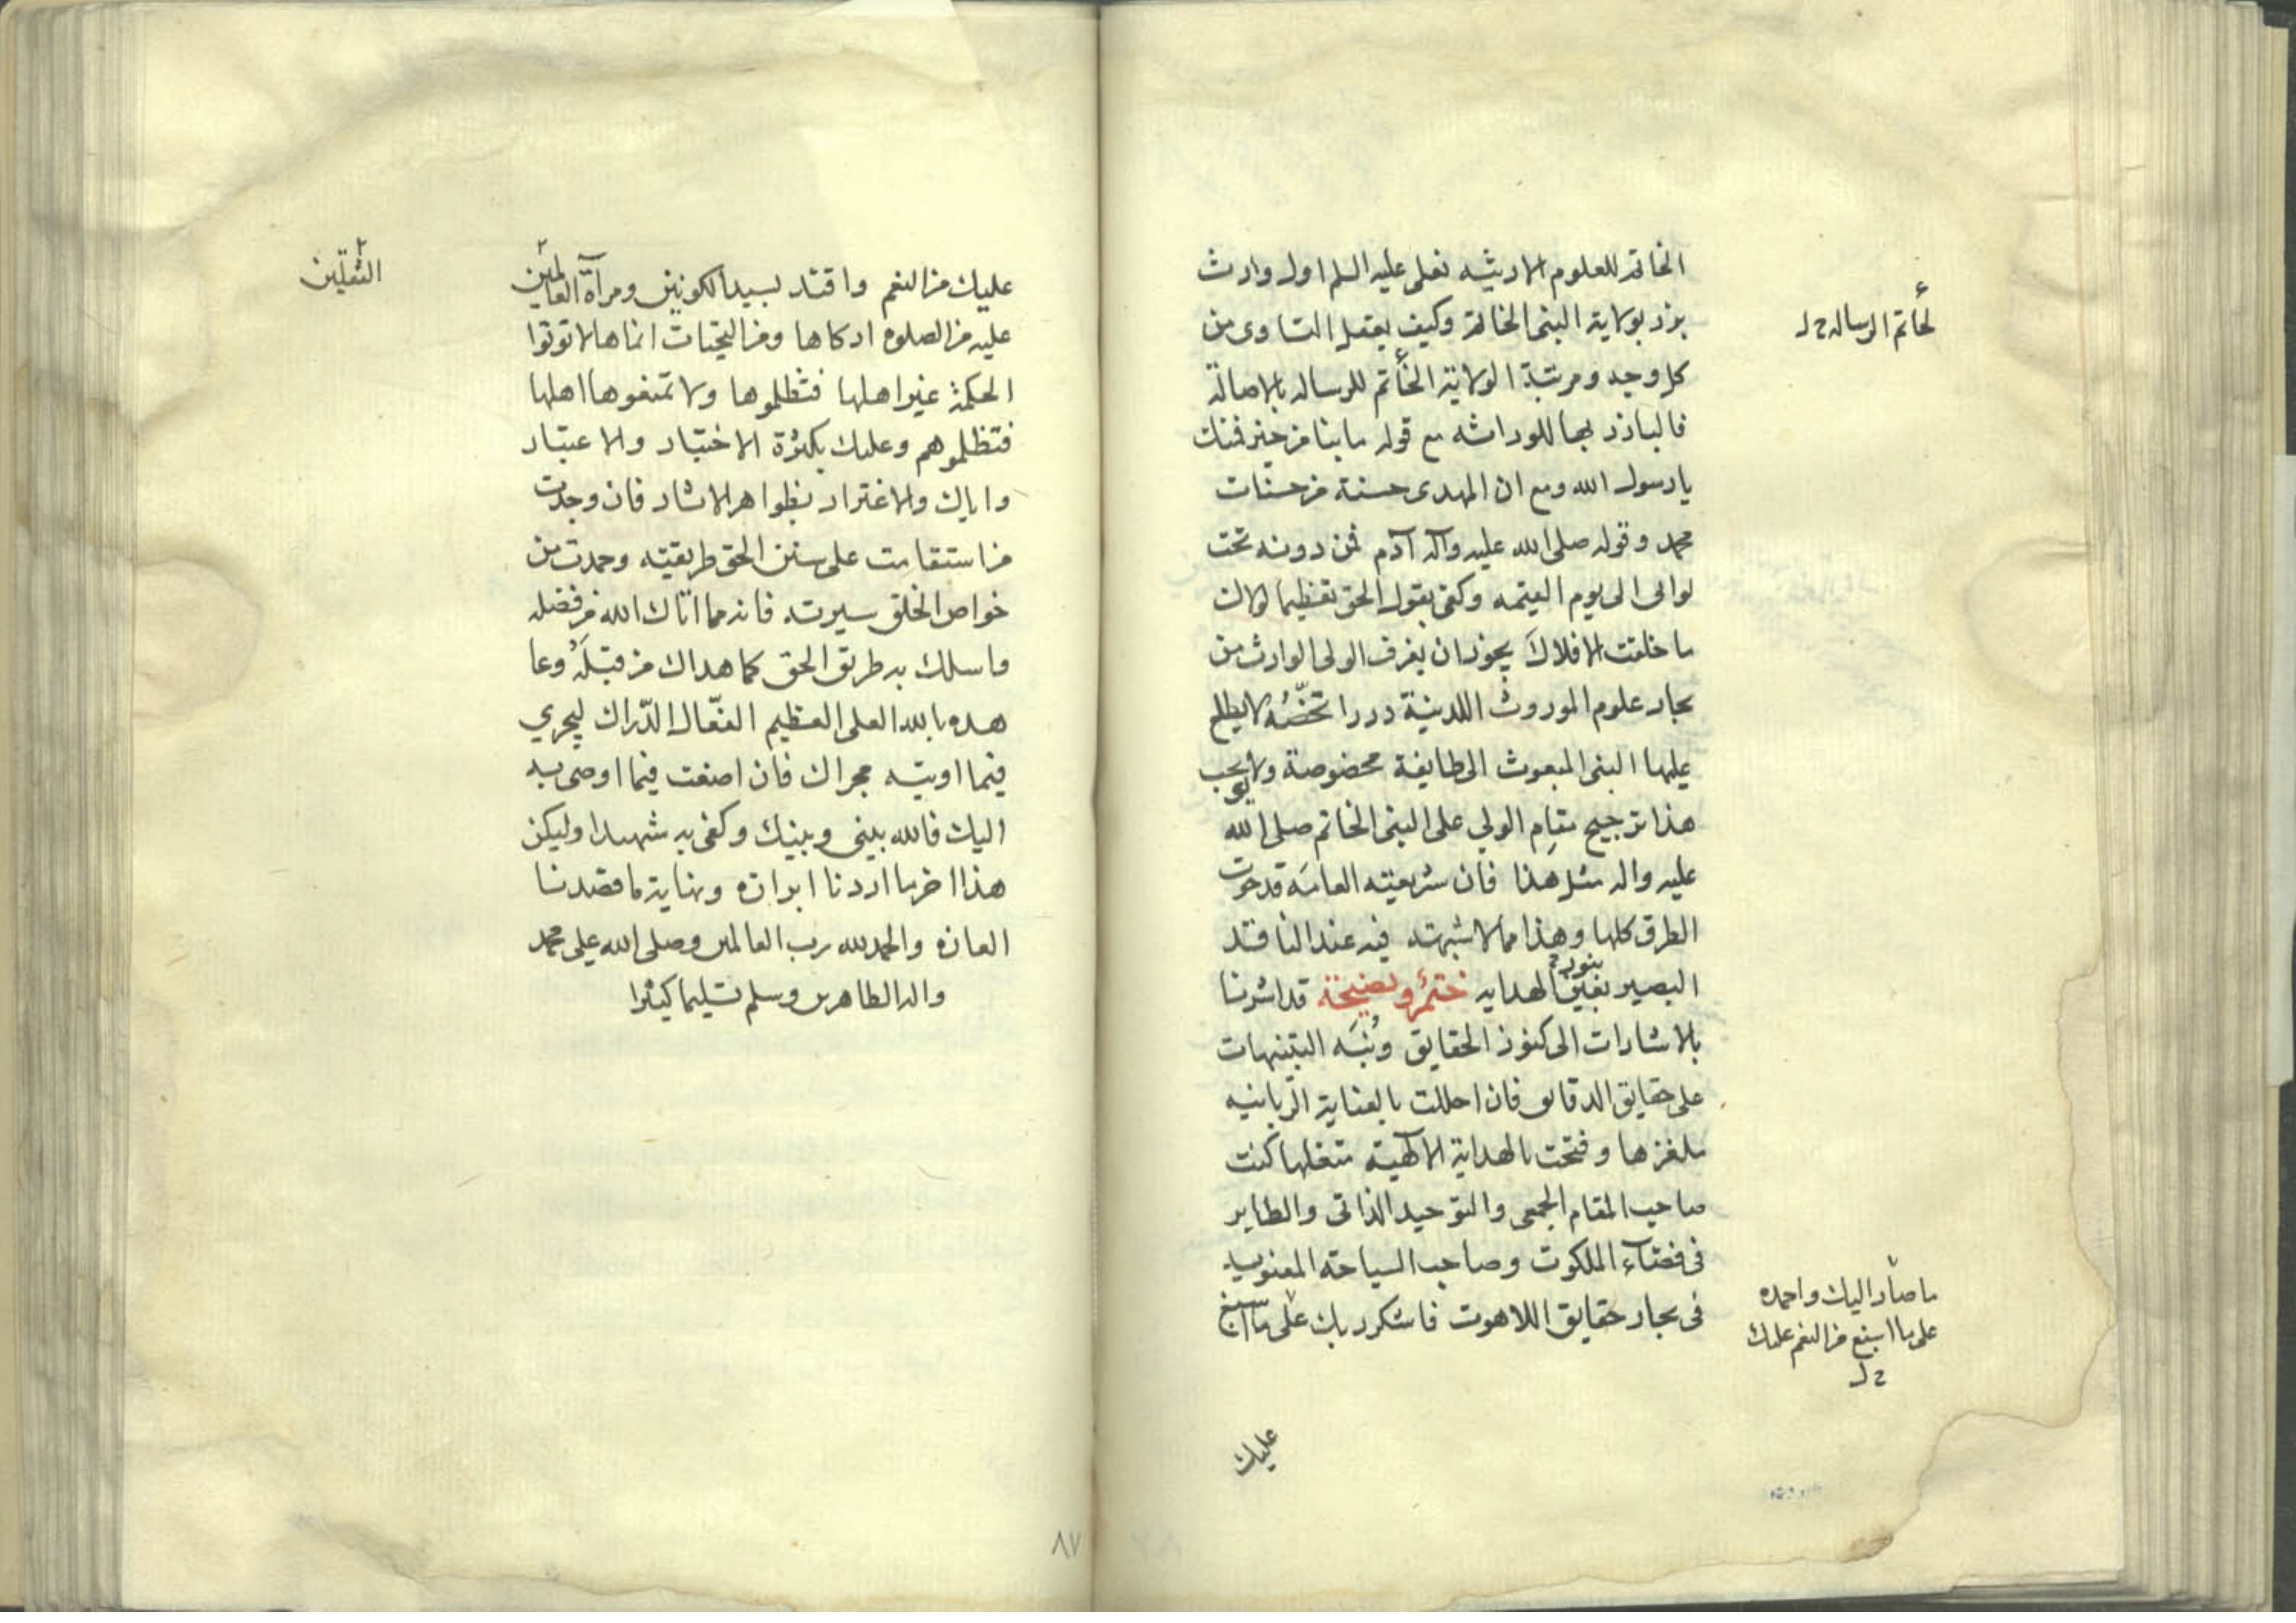 الخاتم للعلوم الارثيه فعلى عليه السلم اول وارث
برز بولاية النبى الخاتم وكيف يعقل التساوى من
كل وجه ومرتبة الولاية الخاتم للرساله بالاصالة
لخاتم الرساله ح ل
فالبارز بها للوراثه مع قوله ما بنا من خير فمنك
يا رسول الله ومع ان المهدى حسنة من حسنات
محمد وقوله صلى الله عليه وآله آدم فمن دونه تحت
لوائى الى يوم القيمه وكفى بقول الحق تعظيما لولاك
ما خلقت الافلاك يجوز ان يغرف الولى الوارث من
بحار علوم الموروث اللدنية دررا تخصّه لا يطلع
عليها النبى المبعوث الى طايفة مخصوصة ولا يوجب
هذا ترجيح مقام الولي على النبى الخاتم صلى الله
عليه واله مثل هذا فان شريعته العامة قد حوت
الطرق كلها وهذا مما لا شبهته فيه عند الناقد
البصير بعين بنور الهدايه ختمٌ ونصيحة قد اشرنا
بالاشارات الى كنوز الحقايق ونبّه التنبيهات
على حقايق الدقايق فان احللت بالعناية الربانيه
ملغزها وفتحت بالهداية الالهيته متغلها كنت
صاحب المقام الجمعى والتوحيد الذاتى والطاير
فى فضآء الملكوت وصاحب السياحة المعنويه
فى بحار حقايق اللاهوت فاشكر ربك على ما اسبغ
ما صار اليك واحمده
على ما اسبغ من النعم عليك
ح ل
عليك
عليك من النعم واقتد بسيد الكونين ومرآة العالمين
الثقلين
عليه من الصلوه ازكاها ومن التحيات انماها لا توتوا
الحكمة غير اهلها فتظلموها ولا تمنعوها اهلها
فتظلموهم وعليك بكثرة الاختبار والاعتبار
واياك والاغترار بظواهر الاثار فان وجدت
من استقامت على سنن الحق طريقيته وحمدت من
خواص الخلق سيرته فانه مما اتاك الله من فضله
واسلك به طريق الحق كما هداك من قبله وعا
هده بالله العلى العظيم الفعّال الدّراك ليجري
فيما اوتيته مجراك فان اضعت فيما اوصى به
اليك فالله بينى وبينك وكفى به شهيدا وليكن
هذا اخر ما اردنا ابرازه ونهاية ما قصدنا
العازه والحمد لله رب العالمين وصلى الله على محمد
واله الطاهرين وسلم تسليما كثيرا
٨٧